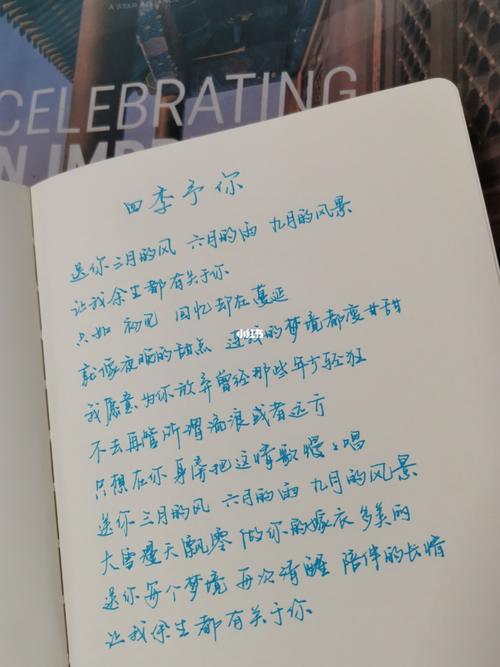 A STAR A
CELEBRATING
N IMP
四季予你
送你三月的风 六月的雨 九月的风景
让我余生都有关于你
只如 初见 回忆却在蔓延
就像夜晚的甜点 连我的梦境都变甘甜
我愿意为你放弃曾经那些年少轻狂
不去再管所谓流浪或者远方
只想在你身旁把这情歌慢慢唱
小红书
送你三月的风 六月的雨 九月的风景
大雪漫天飘零 做你的嫁衣多美丽
送你每个梦境 再次清醒 陪伴的长情
让我余生都有关于你